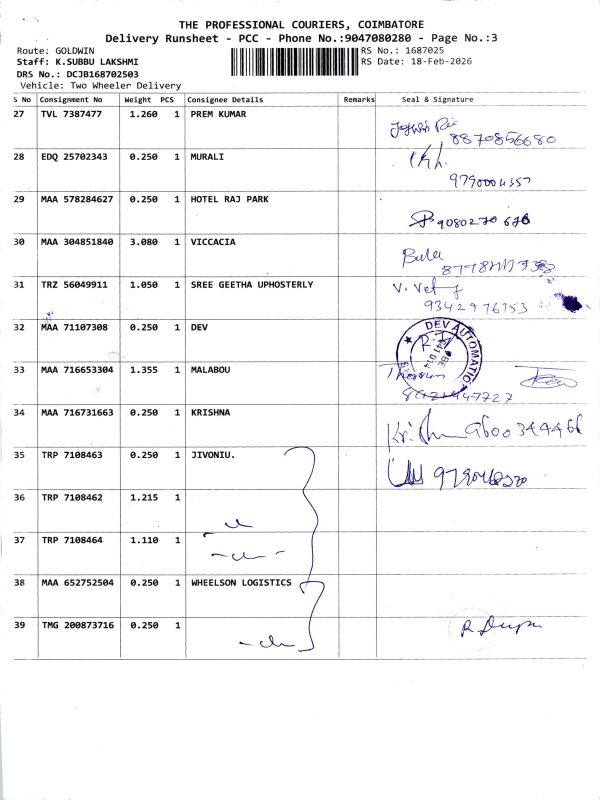 THE PROFESSIONAL COURIERS, COIMBATORE
Delivery Runsheet - PCC - Phone No.:9047080280 - Page No.:3
Route: GOLDWIN
RS No.: 1687025
Staff: K.SUBBU LAKSHMI
RS Date: 18-Feb-2026
DRS No.: DCJB168702503
Vehicle: Two Wheeler Delivery
S No Consignment No Weight PCS Consignee Details Remarks Seal & Signature
27 TVL 7387477 1.260 1 PREM KUMAR
8870856680
28 EDQ 25702343 0.250 1 MURALI
29 MAA 578284627 0.250 1 HOTEL RAJ PARK
9080270676
30 MAA 304851840 3.080 1 VICCACIA
Bala
31 TRZ 56049911 1.050 1 SREE GEETHA UPHOSTERLY
9342976153
32 MAA 71107308 0.250 1 DEV
DEV AUTOMATIO
33 MAA 716653304 1.355 1 MALABOU
34 MAA 716731663 0.250 1 KRISHNA
9600344466
35 TRP 7108463 0.250 1 JIVONIU.
36 TRP 7108462 1.215 1
37 TRP 7108464 1.110 1
38 MAA 652752504 0.250 1 WHEELSON LOGISTICS
39 TMG 200873716 0.250 1